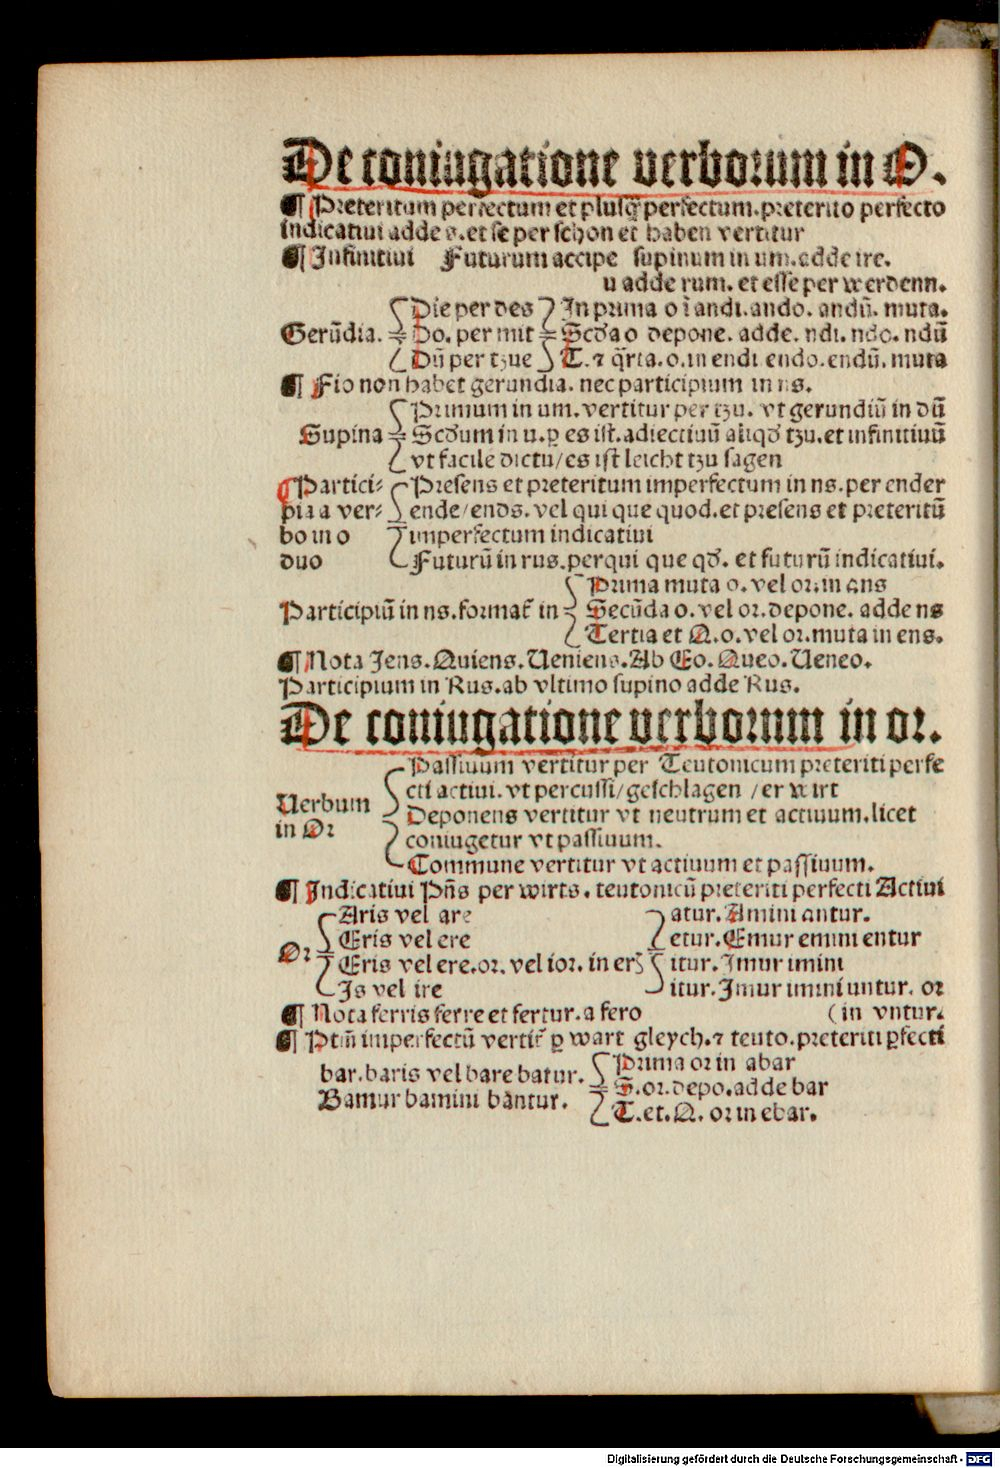 De coniugatione verborum in O.
¶ Preteritum perfectum et plusq̃ perfectum. preterito perfecto
indicatiui adde s. et se per schon et haben vertitur
¶ Infinitiui Futurum accipe supinum in um. adde ire.
u adde rum. et esse per werdenn.
Gerũdia. Die per des In prima o ĩ andi. ando. andũ. muta.
Do. per mit Scďa o depone. adde. ndi. ndo. ndũ
Dũ per tzue T. ⁊ q̃rta. o. in endi endo. endũ. muta
¶ Fio non habet gerundia. nec participium in ns.
Primum in um. vertitur per tzu. vt gerundiũ in dũ
Supina Scďum in u. ꝑ es ist. adiectiuũ aliqď tzu. et infinitiuũ
vt facile dictu/ es ist leicht tzu sagen
Partici⸗ Presens et preteritum imperfectum in ns. per ender
pia a ver⸗ ende/ ends. vel qui que quod. et presens et preteritũ
bo in o imperfectum indicatiui
duo Futurũ in rus. per qui que qď. et futurũ indicatiui.
Prima muta o. vel or. in ans
Participiũ in ns. format̃ in Secũda o. vel or. depone. adde ns
Tertia et Q. o. vel or. muta in ens.
¶ Nota Iens. Quiens. Ueniens. Ab Eo. Queo. Ueneo.
Participium in Rus. ab vltimo supino adde Rus.
De coniugatione verborum in or.
Passiuum vertitur per Teutonicum preteriti perfe
cti actiui. vt percussi/ geschlagen / er wirt
Uerbum Deponens vertitur vt neutrum et actiuum. licet
in Or coniugetur vt passiuum.
Commune vertitur vt actiuum et passiuum.
¶ Indicatiui Pñs per wirts. teutonicũ preteriti perfecti Actiui
Aris vel are atur. Amini antur.
Eris vel ere etur. Emur emini entur
Or Eris vel ere. or. vel ior. in erꝫ itur. Imur imini
Is vel ire itur. Imur imini untur. or
¶ Nota ferris ferre et fertur. a fero (in vntur.
¶ Ptm̃ imperfectũ vertit̃ ꝑ wart gleych. ⁊ teuto. preteriti ꝑfecti
Prima or in abar
bar. baris vel bare batur. S. or. depo. adde bar
Bamur bamini bantur. T. et. Q. or in ebar.
Digitalisierung gefördert durch die Deutsche Forschungsgemeinschaft - DFG